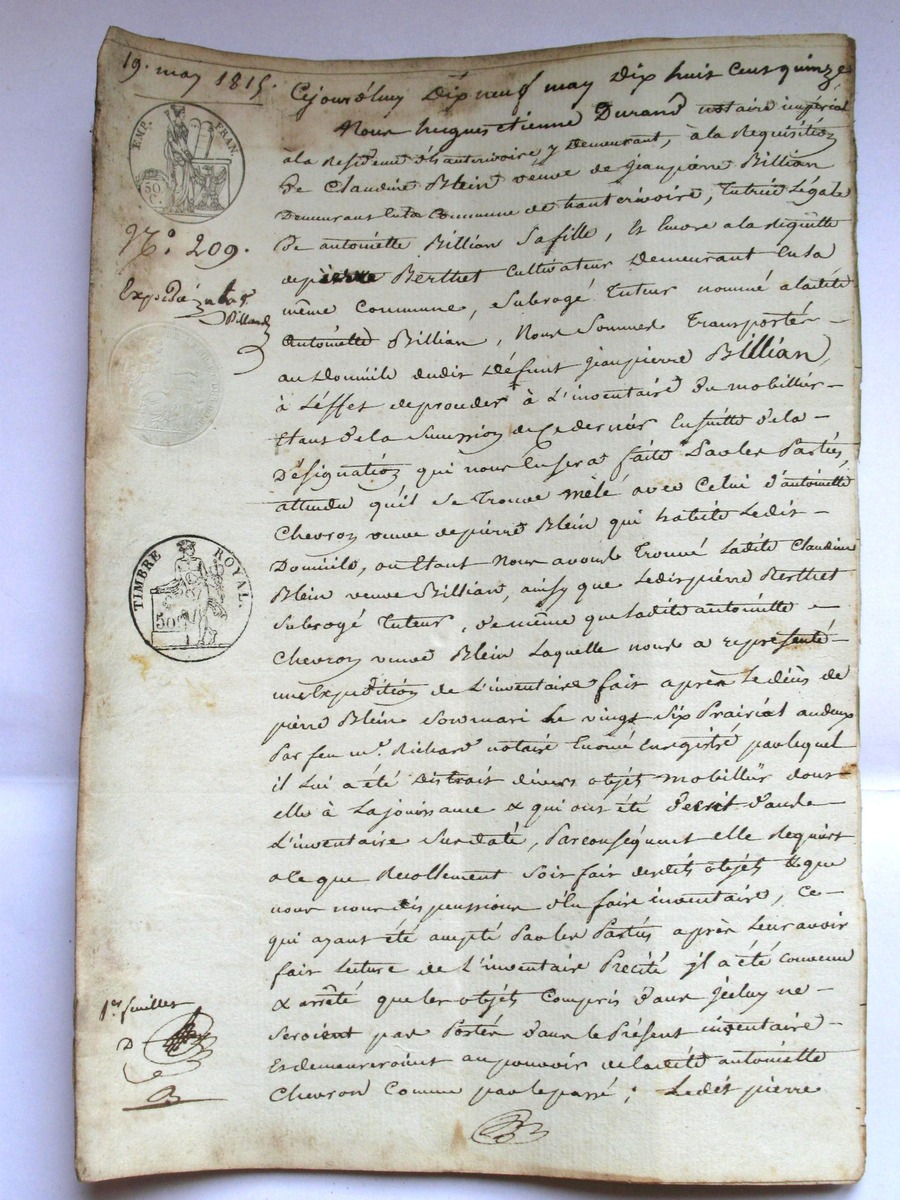 19. may 1815.
EMP. FRAN.
50 C.
N.º 209.
Expedié
Billiand
TIMBRE ROYAL.
50 C
1er feuillet
D
Cejourd'huy Dix neuf may Dix huit Cens quinze
Nous hugues etienne Durand notaire impérial
à la Residence d'hauterivoire y Demeurant, à la Requisition
De Claudine Blein veuve de jeanpierre Billian
Demeurant en la Commune de hauterivoire, Tutrice Légale
De antoinette Billian Safille, et Encore a la requête
de pierre Berthet Cultivateur Demeurant en sa
même Commune, Subrogé Tuteur nommé aladite
Antoinette Billian, Nous Sommes Transportés
au Domicile dudit Défunt jeanpierre Billian,
à L'éffet de proceder à L'inventaire du mobillier
Etant de la Succession de Ce dernier Ensuitte de la
Désignation qui nous En sera faite Par les Parties,
attendu qu'il Se Trouve mêlé avec Celui d'antoinette
Chevron veuve de pierre Blein qui habite Ledit
Domicile, ou Etant Nous avons Trouvé Ladite Claudine
Blein veuve Billian, ainsy que Ledit pierre Berthet
Subrogé Tuteur, de même que Ladite antoinette
Chevron veuve Blein Laquelle nous a représenté
une Expédition de L'inventaire fait après Le décès de
pierre Blein Son mari Le vingt Six Prairial an deux
Par feu m.e Richard notaire Enregistré par lequel
il Lui a été Distrait divers objets mobillier dont
elle à La jouissance & qui ont été décrit dans
L'inventaire Sus daté, Par conséquent elle Requiert
a Ce que Recollement Soit fait desdits objets & que
nous nous dispensions d'En faire inventaire, Ce
qui ayant été accepté Par les Parties après Leur avoir
fait Lecture de L'inventaire Précité il a été Convenu
& arrêté que les objets Compris dans Jceluy ne
Seroient pas Portés dans le Présent inventaire
Et demeureroient au pouvoir de ladite antoinette
Chevron Comme par le passé ; Ledit pierre